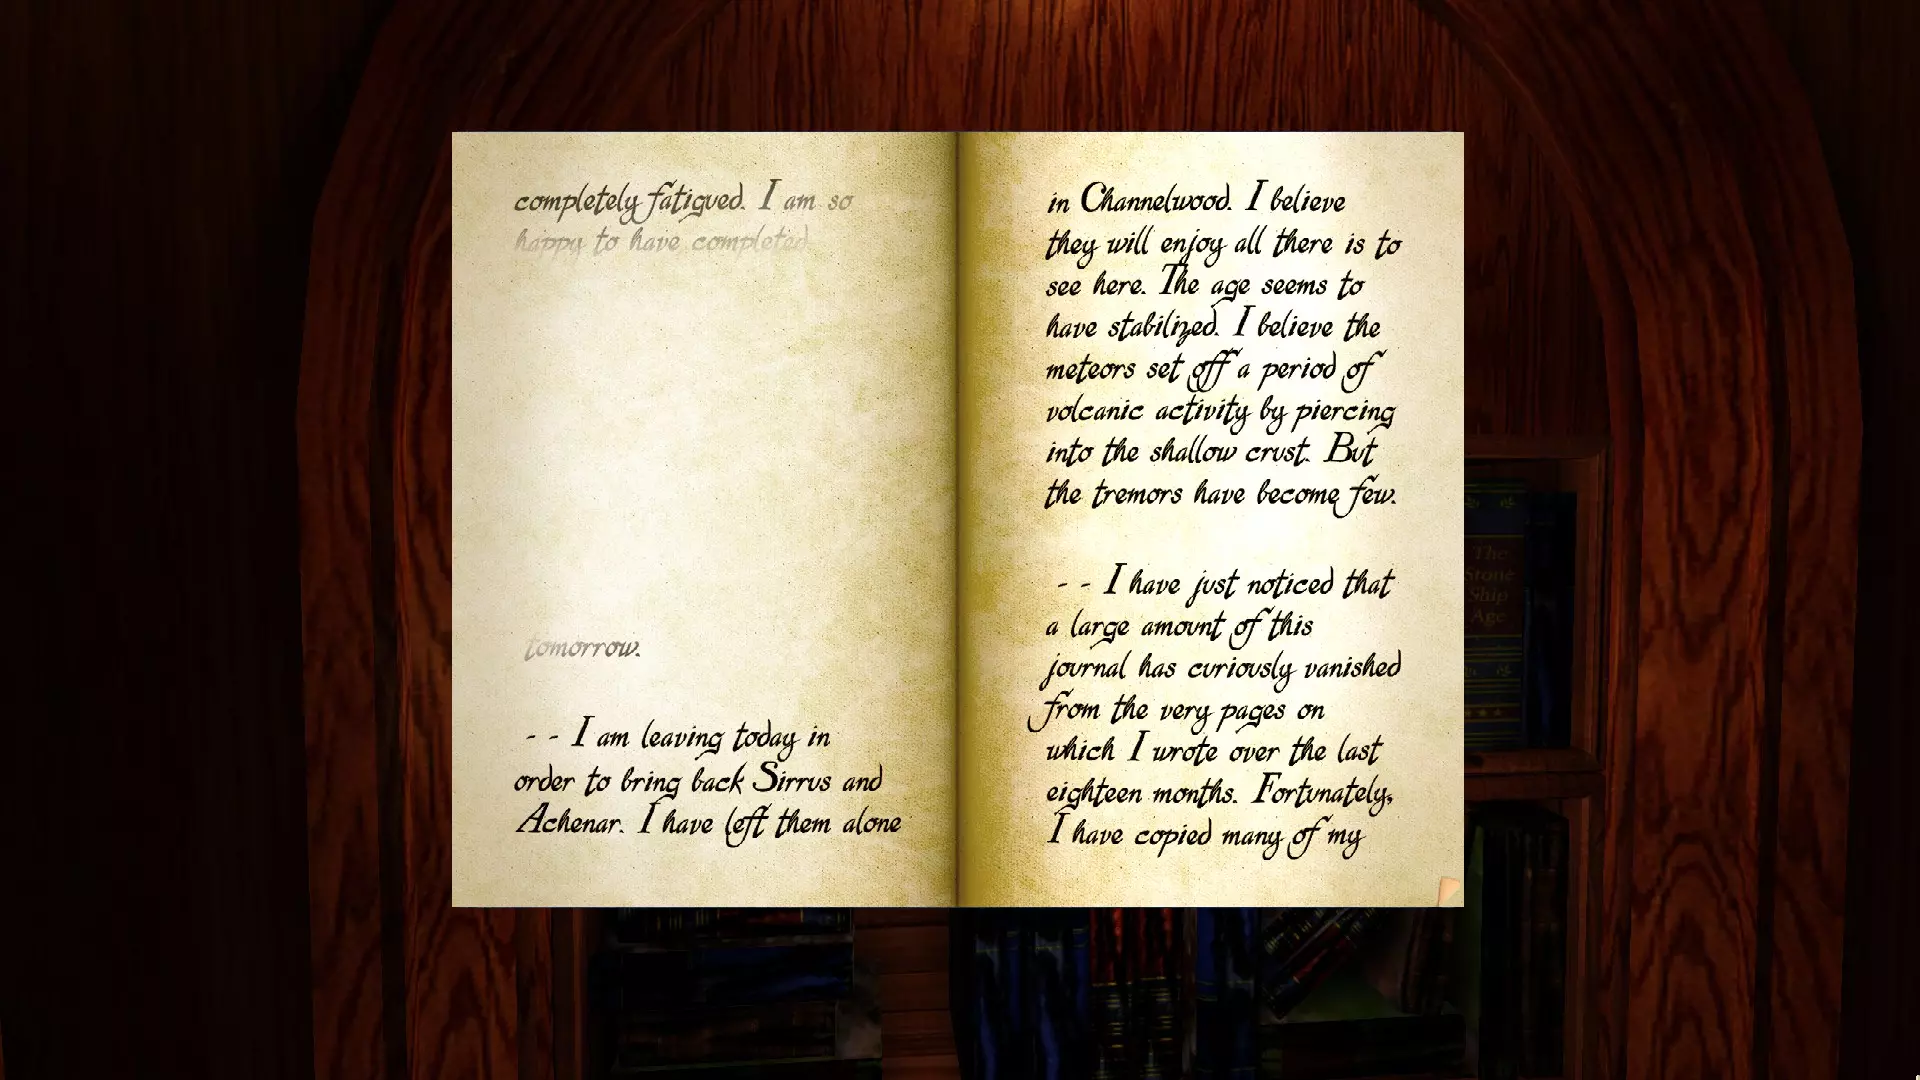 completely fatigued. I am so
happy to have completed
tomorrow.
- - I am leaving today in
order to bring back Sirrus and
Achenar. I have left them alone
in Channelwood. I believe
they will enjoy all there is to
see here. The age seems to
have stabilized. I believe the
meteors set off a period of
volcanic activity by piercing
into the shallow crust. But
the tremors have become few.
- - I have just noticed that
a large amount of this
journal has curiously vanished
from the very pages on
which I wrote over the last
eighteen months. Fortunately,
I have copied many of my
The
Stone
Ship
Age